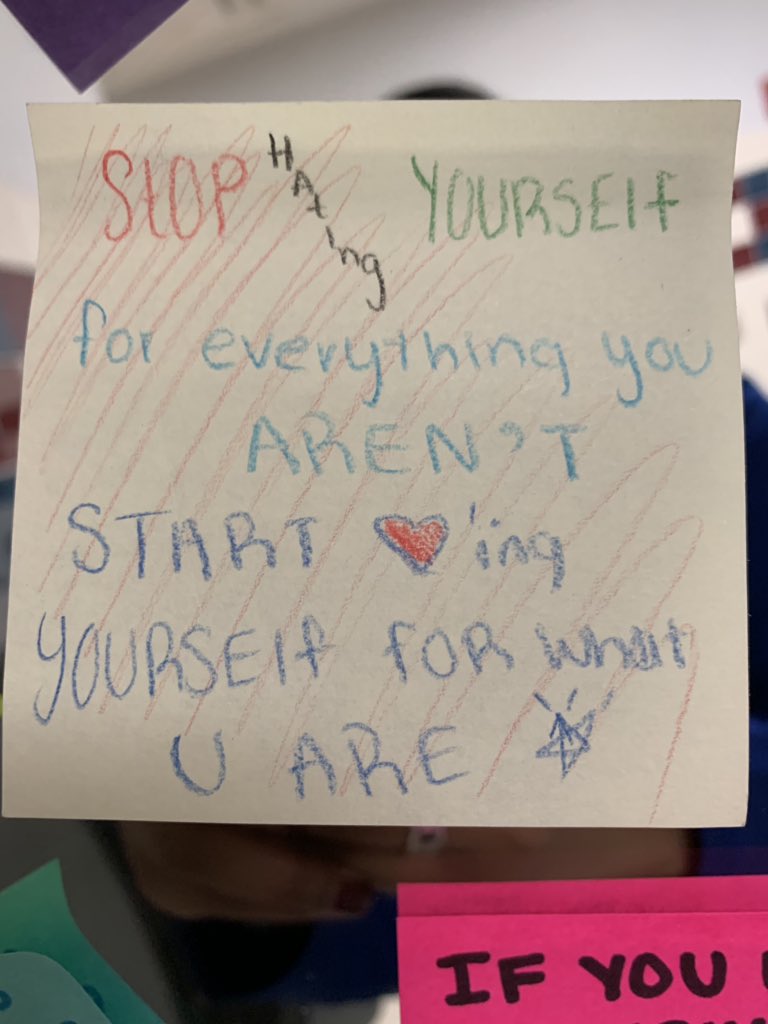 StOP HAting YOURSElf
for everything you
AREN'T
START ❤'ing
YOURSElf foR what
U ARE ☆
IF YOU